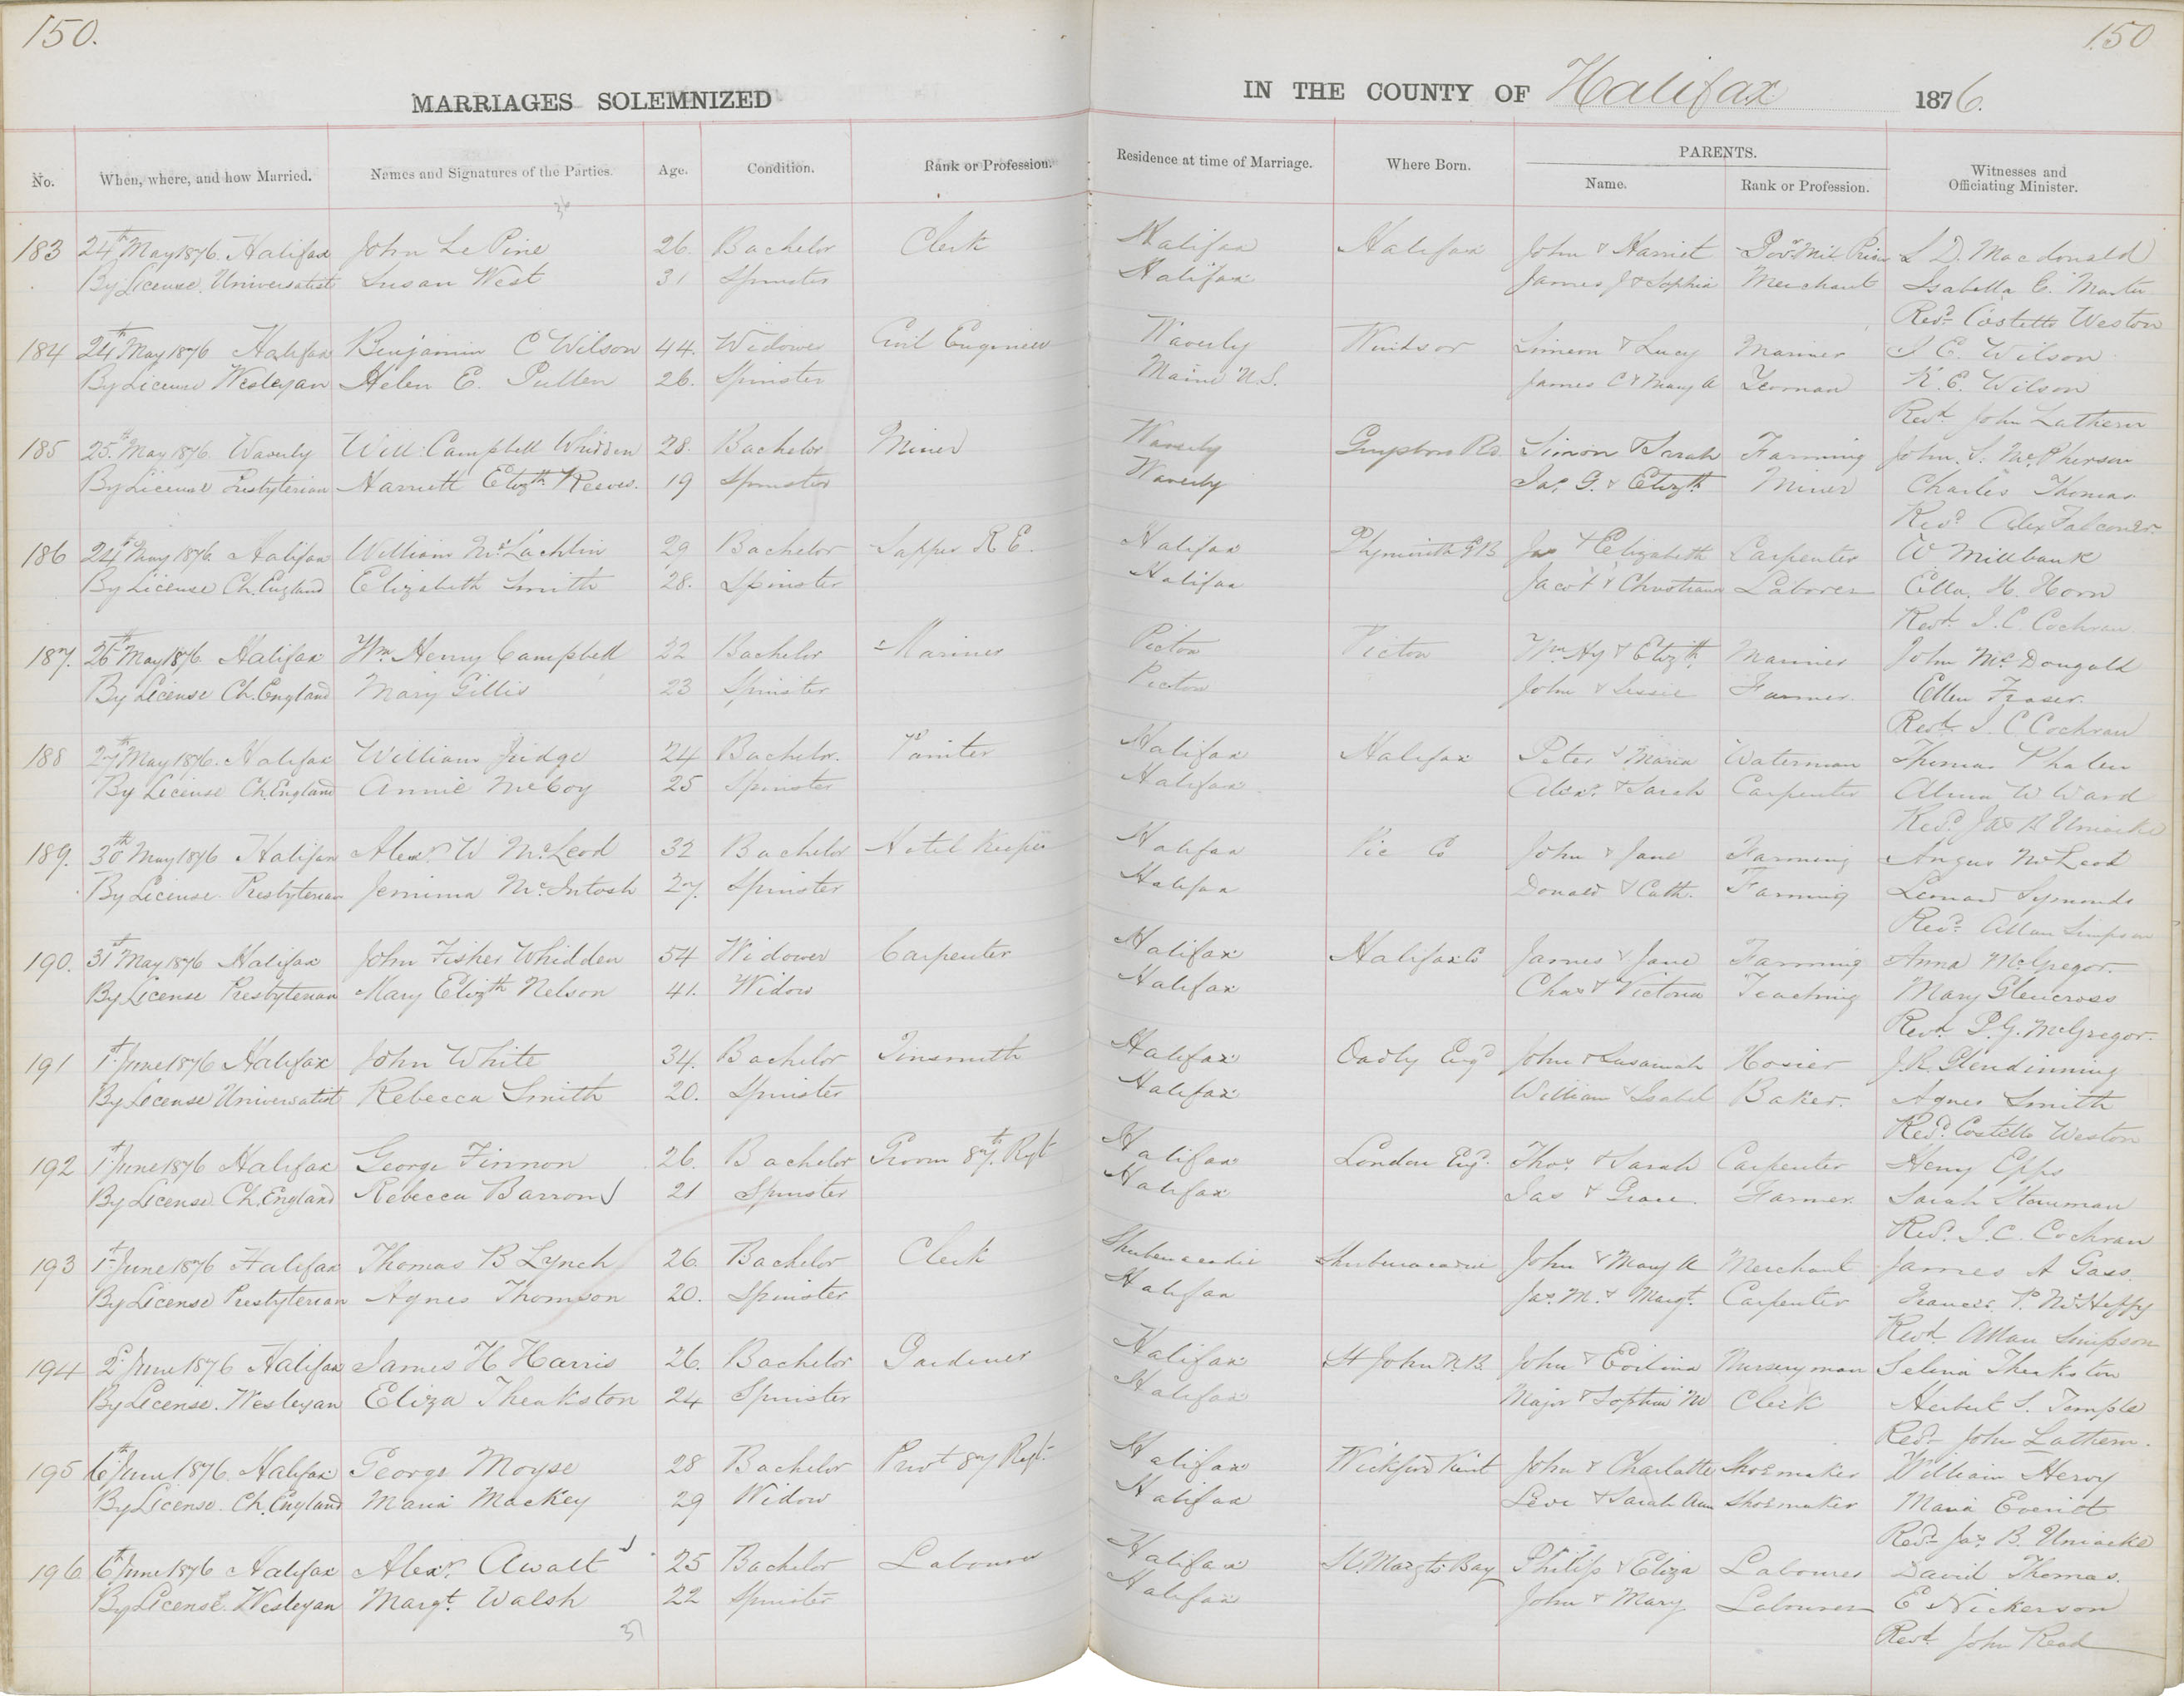 150.
150
MARRIAGES SOLEMNIZED
IN THE COUNTY OF Halifax 1876.
No. When, where, and how Married. Names and Signatures of the Parties. Age. Condition. Rank or Profession. Residence at time of Marriage. Where Born. PARENTS. Name. Rank or Profession. Witnesses and Officiating Minister.
183 24th May 1876. Halifax John Le Pine 26. Bachelor Clerk Halifax Halifax John & Harriet L D. Macdonald
By License. Universalist Susan West 31 Spinster Halifax James J & Sophia Merchant Isabella C.
Revd. Costello Weston
184 24th May 1876 Halifax Benjamin C Wilson 44. Widower Civil Engineer Waverly Windsor Simeon & Lucy Mariner J E. Wilson
By License Wesleyan Helen E. Pullen 26. Spinster Maine U.S. James C & Mary A Yeoman K. E. Wilson
Revd. John Lathern
185 25th May 1876. Waverly Will: Campbell Whidden 28. Bachelor Miner Waverly Simon & Sarah Farming John. S. McPherson
By License Presbyterian Harriett Elizth Reeves. 19 Spinster Waverly Jas. G. & Elizth Miner Charles Thomas
Revd. Alex Falconer.
186 24th May 1876. Halifax William McLachlin 29 Bachelor Sapper R E. Halifax Plymouth G B Jas & Elizabeth Carpenter W Millbank
By License Ch. England Elizabeth Smith 28. Spinster Halifax Jacob & Christiana Laborer Ella. H. Horn
Revd. J. C Cochran
187. 26th May 1876. Halifax Wm. Henry Campbell 22 Bachelor Mariner Picton Picton Wm Hy & Elizth. Mariner John McDougald
By License Ch. England Mary Gillis 23 Spinster Picton John & Jessie Farmer. Ellen Fraser.
Revd. J. C Cochran
188 27th May 1876. Halifax William Judge 24 Bachelor. Painter Halifax Halifax Peter & Maria Waterman Thomas Phalen
By License Ch. England Annie McCoy 25 Spinster Halifax Alexr. & Sarah Carpenter Alma W Ward
Revd. Jas B Uniacke
189. 30th May 1876 Halifax Alexr. W McLeod 32 Bachelor Hotel Keeper Halifax Pic Co John & Jane Farming Angus McLeod
By License. Presbyterian Jemima McIntosh 27. Spinster Halifax Donald & Cath. Farming Leonard Symonds
Revd. Allan Simpson
190. 31st May 1876 Halifax John Fisher Whidden 54 Widower Carpenter Halifax Halifax Co James & Jane Farming Anna McGregor.
By License Presbyterian Mary Elizth Nelson 41. Widow Halifax Chas & Victoria Teaching Mary Glencross
Revd. P. G. McGregor.
191 1st June 1876 Halifax John White 34. Bachelor Tinsmith Halifax John & Susannah Hosier J. R. Glendinning
By License Universalist Rebecca Smith 20. Spinster Halifax William & Isabel Baker. Agnes Smith
Revd. Costello Weston
192 1st June 1876 Halifax George Finnon 26. Bachelor Groom 87th. Regt Halifax London Engd. Thos. & Sarah Carpenter Henry Epps
By License. Ch. England Rebecca Barron 21 Spinster Halifax Jas & Grace. Farmer. Sarah
Revd. J. C. Cochran
193 1st June 1876 Halifax Thomas B Lynch 26. Bachelor Clerk Shubenacadie Shubenacadie John & Mary A Merchant James A Gass.
By License Presbyterian Agnes Thomson 20. Spinster Halifax Jas. M. & Margt. Carpenter Frances P. McHeffy
Revd. Allan Simpson
194 2d June 1876 Halifax James H Harris 26. Bachelor Gardener Halifax St John N.B. John & Nurseryman Selena Theakston
By License. Wesleyan Eliza Theakston 24 Spinster Halifax Major & Sophia M Clerk Herbert S. Temple
Revd. John Lathern.
195 6th June 1876. Halifax George Moyse 28 Bachelor Privt 87 Regt. Halifax Wickford Kent John & Charlotte Shoemaker William Hervy
By License. Ch. England Maria Mackey 29 Widow Halifax Levi & Sarah Ann Shoemaker Maria Everitt
Revd. Jas. B. Uniacke
196 6th June 1876 Halifax Alexr. Awalt 25 Bachelor Labourer Halifax St. Margts Bay Philip & Eliza Labourer David Thomas.
By License. Wesleyan Margt. Walsh 22 Spinster Halifax John & Mary Labourer E Nickerson
Revd. John Read